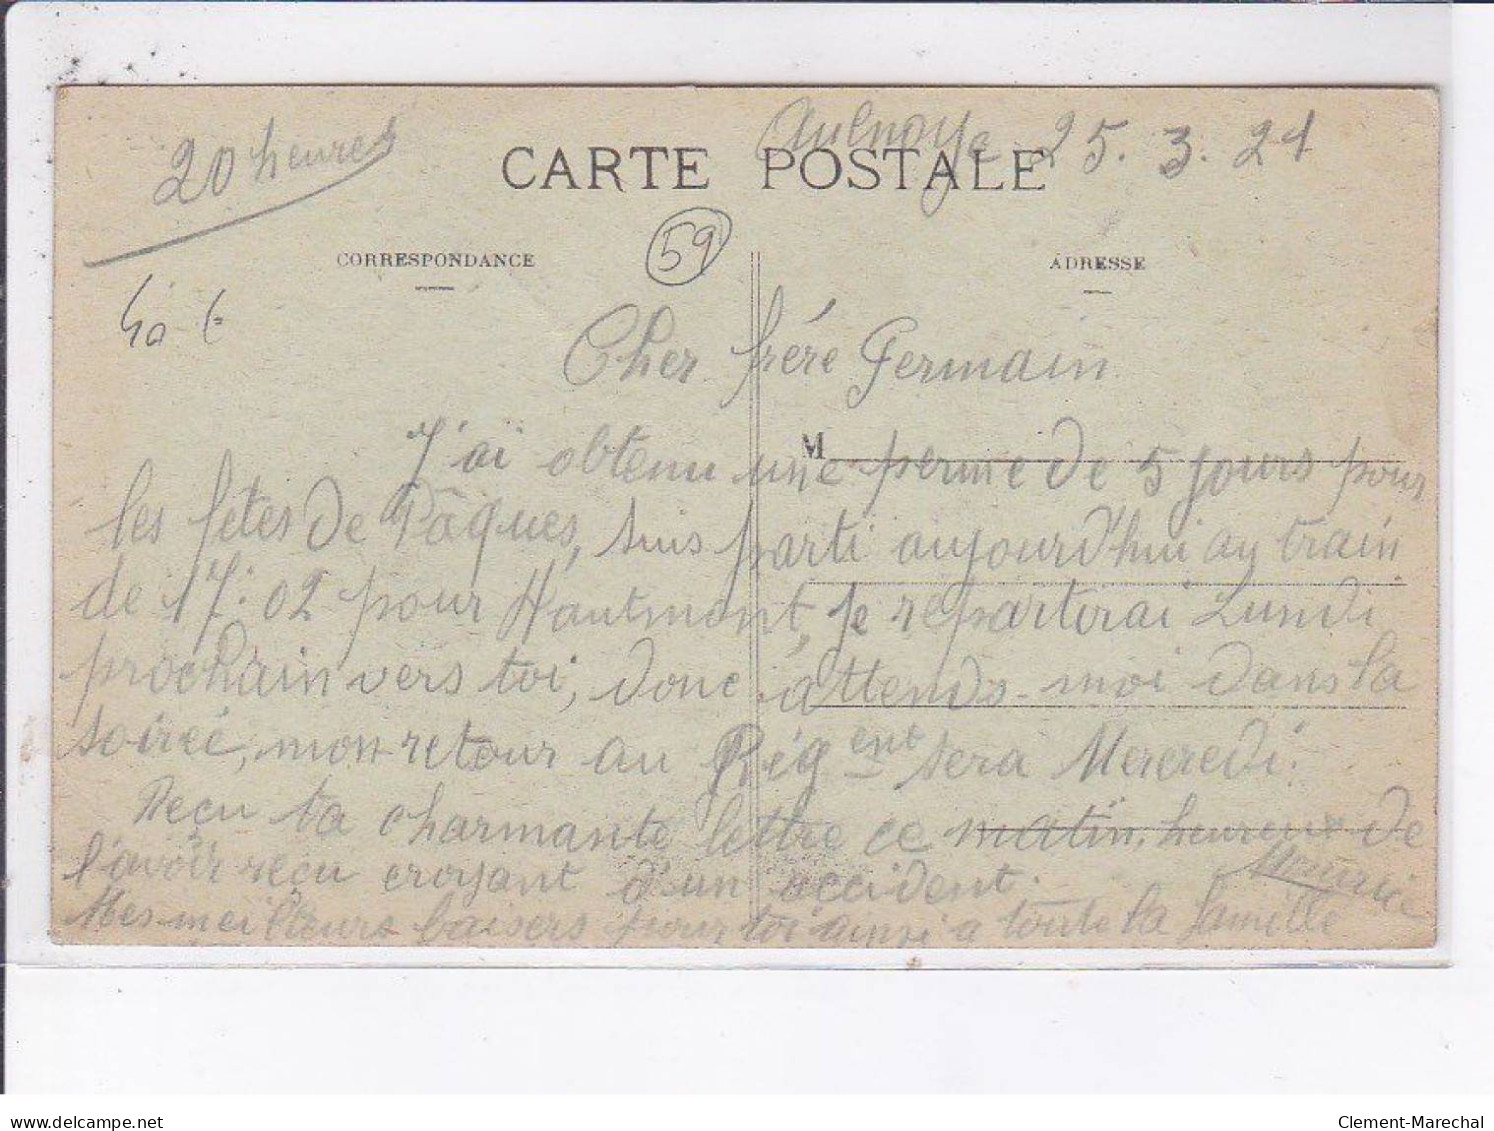 20 heures
Aulnoye 25.3.21
CARTE POSTALE
59
CORRESPONDANCE
ADRESSE
40 €
Cher frére Germain
M
J'ai obtenu une perme de 5 jours pour
les fetes de Pâques, suis parti aujourd'hui au train
de 17:02 pour Hautmont, je repartirai Lundi
prochain vers toi, donc attends-moi dans la
soireé, mon retour au Régent sera Mercredi.
Reçu ta charmante lettre ce matin, heureux de
l'avoir reçu croyant d'un accident.
Mes meilleurs baisers pour toi ainsi a toute la famille
delcampe.net
Clement-Marechal